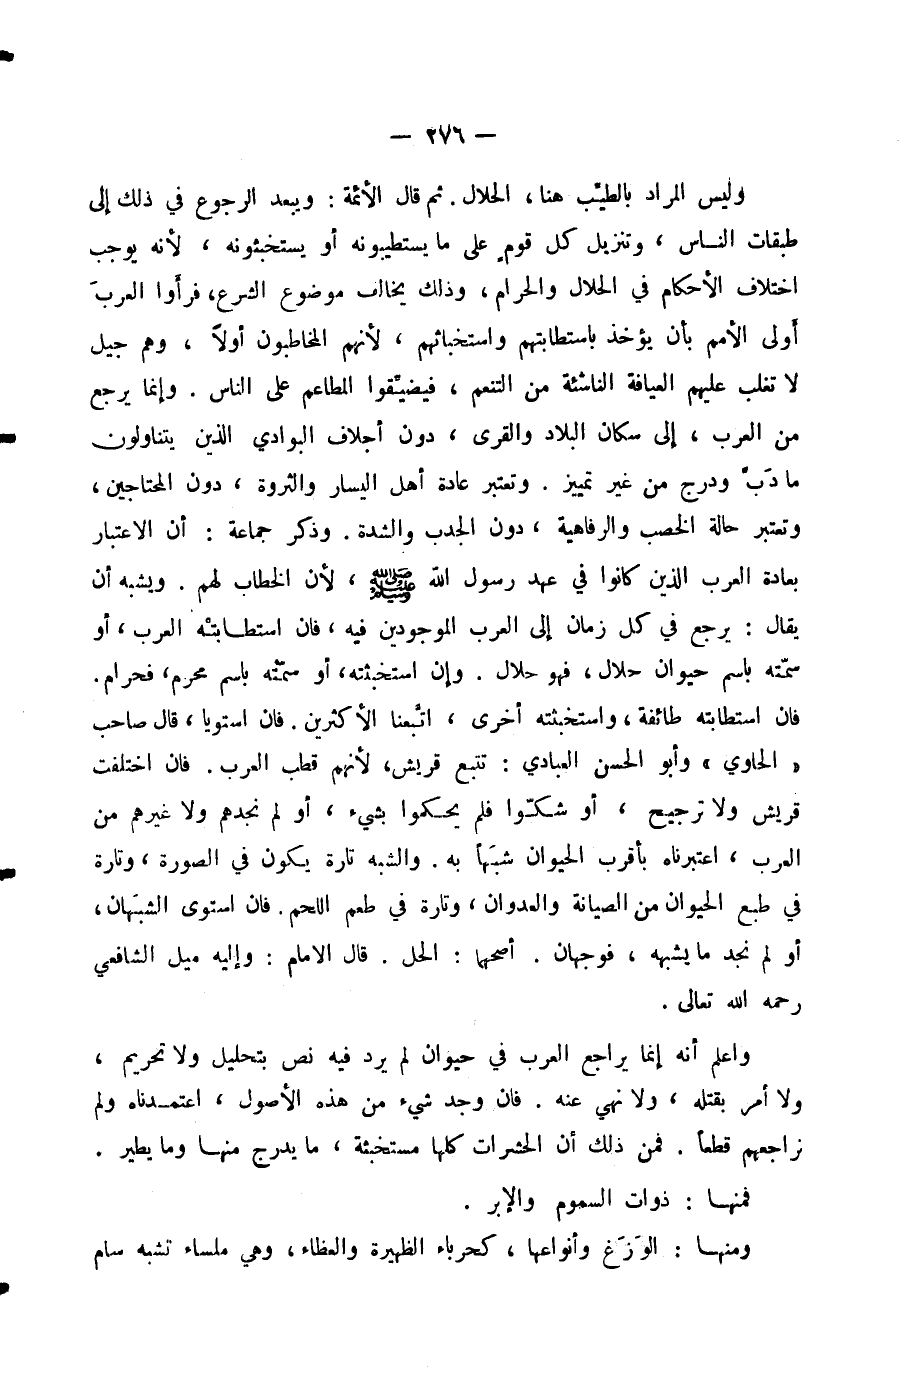 — ٢٧٦ —
وليس المراد بالطيّب هنا ، الحلال . ثم قال الأئمة : ويبعد الرجوع في ذلك إلى
طبقات النـاس ، وتنزيل كل قومٍ على ما يستطيبونه أو يستخبثونه ، لأنه يوجب
اختلاف الأحكام في الحلال والحرام ، وذلك يخالف موضوع الشرع، فرأوا العربَ
أولى الأمم بأن يؤخذ باستطابتهم واستخبائهم ، لأنهم المخاطبون أولاً ، وهم جيل
لا تغلب عليهم العيافة الناشئة من التنعم ، فيضيّقوا المطاعم على الناس . وإنما يرجع
من العرب ، إلى سكان البلاد والقرى ، دون أجلاف البوادي الذين يتناولون
ما دَبَّ ودرج من غير تمييز . وتعتبر عادة أهل اليسار والثروة ، دون المحتاجين ،
وتعتبر حالة الخصب والرفاهية ، دون الجدب والشدة . وذكر جماعة : أن الاعتبار
بعادة العرب الذين كانوا في عهد رسول الله ﷺ ، لأن الخطاب لهم . ويشبه أن
يقال : يرجع في كل زمان إلى العرب الموجودين فيه ، فان استطـابتْه العرب ، أو
سمّته باسم حيوان حلال ، فهو حلال . وإن استخبثته، أو سمّتْه باسم محرم، فحرام .
فان استطابته طائفة ، واستخبثته أخرى ، اتَّبعنا الأكثرين . فان استويا ، قال صاحب
« الحاوي » وأبو الحسن العبادي : تتبع قريش، لأنهم قطب العرب . فان اختلفت
قريش ولا ترجيح ، أو شكـّوا فلم يحكموا بشيء ، أو لم نجدهم ولا غيرهم من
العرب ، اعتبرناه بأقرب الحيوان شبَهاً به . والشبه تارة يكون في الصورة ، وتارة
في طبع الحيوان من الصيانة والعدوان ، وتارة في طعم اللحم . فان استوى الشبَهان ،
أو لم نجد ما يشبهه ، فوجهان . أصحها : الحل . قال الامام : وإليه ميل الشافعي
رحمه الله تعالى .
واعلم أنه إنما يراجع العرب في حيوان لم يرد فيه نص بتحليل ولا تحريم ،
ولا أمر بقتله ، ولا نهي عنه . فان وجد شيء من هذه الأصول ، اعتمـدناه ولم
نراجعهم قطعاً . فمن ذلك أن الحشرات كلها مستخبثة ، ما يدرج منهـا وما يطير .
فمنهـا : ذوات السموم والإبر .
ومنهـا : الوَزَغ وأنواعها ، كحرباء الظهيرة والعظاء ، وهي ملساء تشبه سام